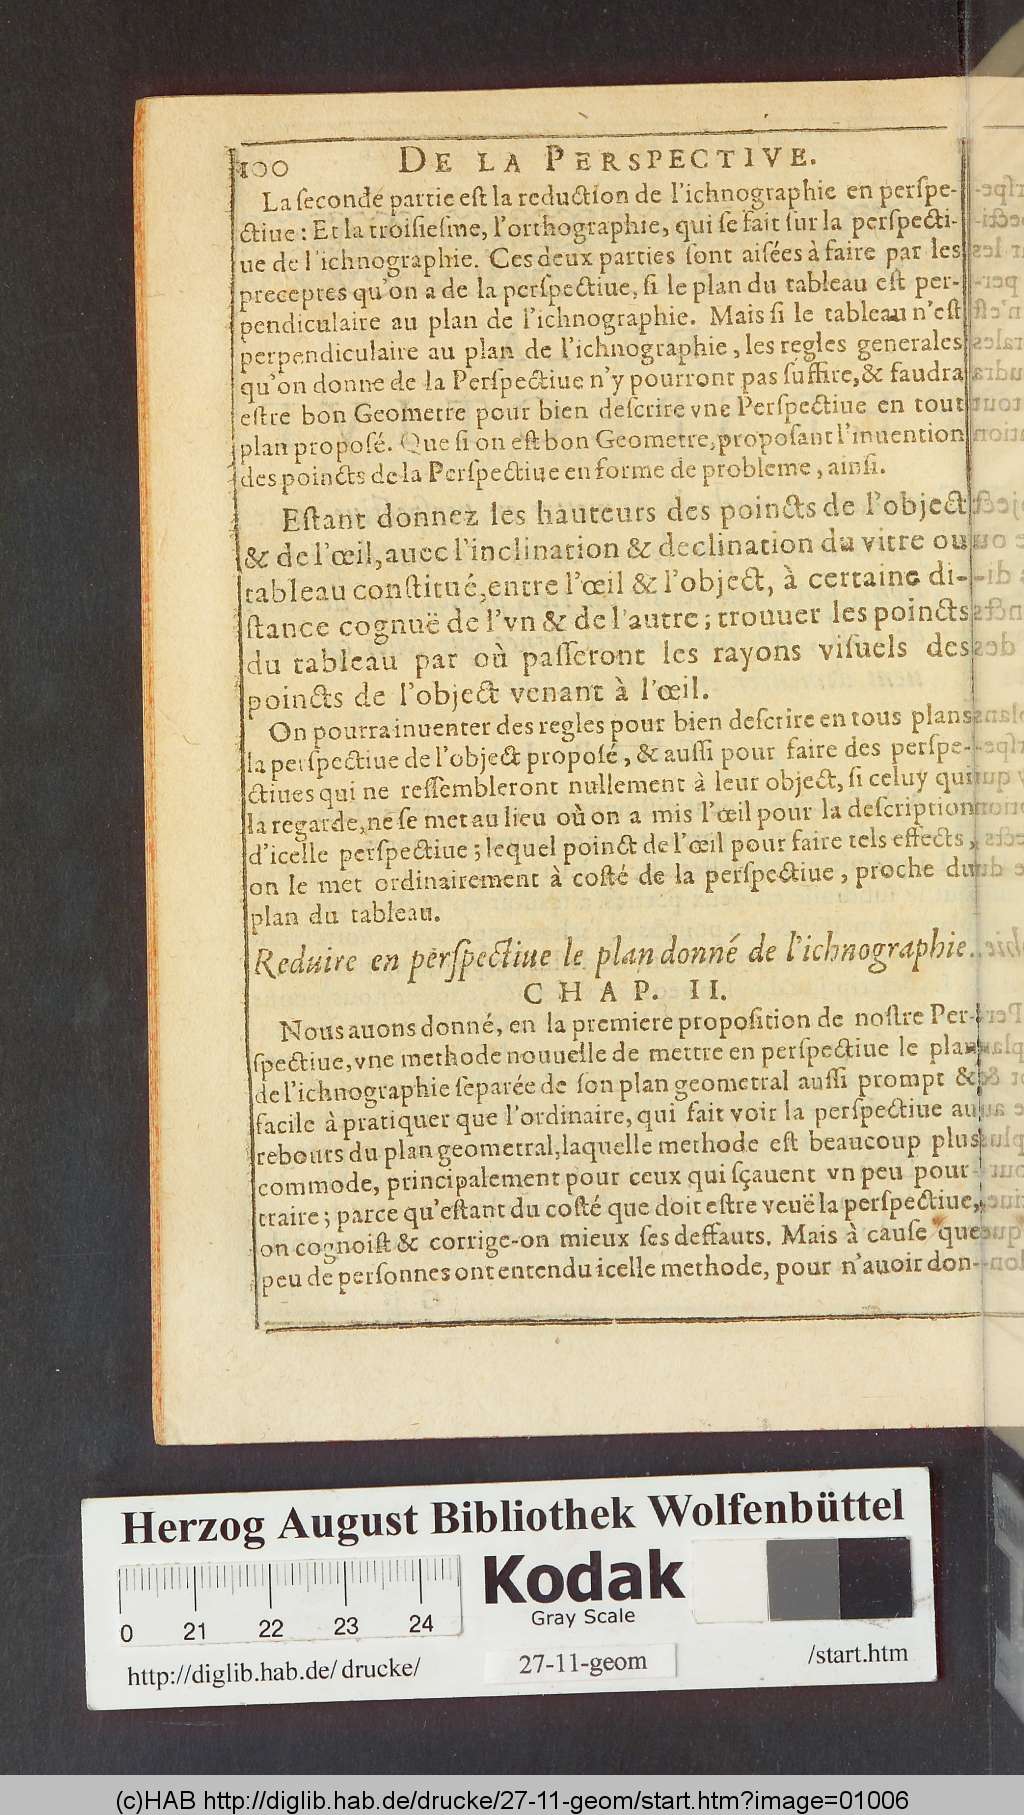 100 DE LA PERSPECTIVE.
La seconde partie eſt la reduction de l'ichnographie en perſpe-
ctiue : Et la troiſieſme, l'orthographie, qui ſe fait ſur la perſpecti-
ue de l'ichnographie. Ces deux parties ſont aiſées à faire par les
preceptes qu'on a de la perſpectiue, ſi le plan du tableau eſt per-
pendiculaire au plan de l'ichnographie. Mais ſi le tableau n'eſt
perpendiculaire au plan de l'ichnographie, les regles generales
qu'on donne de la Perſpectiue n'y pourront pas ſuffire, & faudra
eſtre bon Geometre pour bien deſcrire vne Perſpectiue en tout
plan propoſé. Que ſi on eſt bon Geometre, propoſant l'inuention
des poincts de la Perſpectiue en forme de probleme, ainſi.
Eſtant donnez les hauteurs des poincts de l'object
& de l'œil, auec l'inclination & declination du vitre ou
tableau conſtitué, entre l'œil & l'object, à certaine di-
ſtance cognuë de l'vn & de l'autre ; trouuer les poincts
du tableau par où paſſeront les rayons viſuels des
poincts de l'object venant à l'œil.
On pourra inuenter des regles pour bien deſcrire en tous plans
la perſpectiue de l'object propoſé, & auſſi pour faire des perſpe-
ctiues qui ne reſſembleront nullement à leur object, ſi celuy qui
la regarde, ne ſe met au lieu où on a mis l'œil pour la deſcription
d'icelle perſpectiue ; lequel poinct de l'œil pour faire tels effects,
on le met ordinairement à coſté de la perſpectiue, proche du
plan du tableau.
Reduire en perſpectiue le plan donné de l'ichnographie.
CHAP. II.
Nous auons donné, en la premiere propoſition de noſtre Per-
ſpectiue, vne methode nouuelle de mettre en perſpectiue le plan
de l'ichnographie ſeparée de ſon plan geometral auſſi prompt &
facile à pratiquer que l'ordinaire, qui fait voir la perſpectiue au
rebours du plan geometral, laquelle methode eſt beaucoup plus
commode, principalement pour ceux qui ſçauent vn peu pour-
traire ; parce qu'eſtant du coſté que doit eſtre veuë la perſpectiue,
on cognoiſt & corrige-on mieux ſes deffauts. Mais à cauſe que
peu de perſonnes ont entendu icelle methode, pour n'auoir don-
Herzog August Bibliothek Wolfenbüttel
Kodak
Gray Scale
0 21 22 23 24
http://diglib.hab.de/drucke/ 27-11-geom /start.htm
(c)HAB http://diglib.hab.de/drucke/27-11-geom/start.htm?image=01006